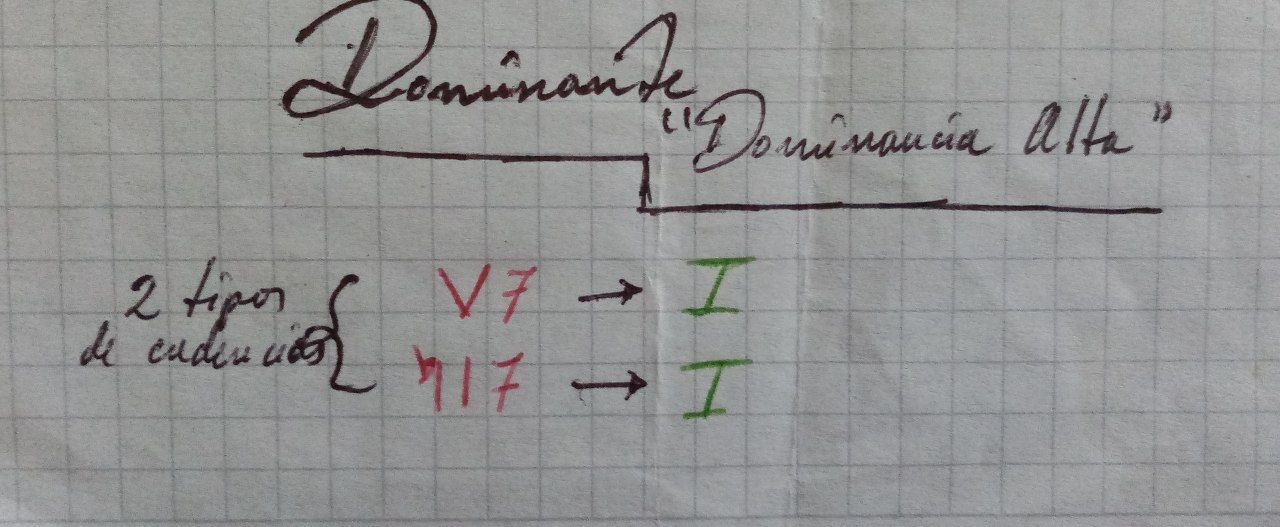 Dominante
"Dominancia Alta"
2 tipos
de cadencias
V7 → I
II7 → I